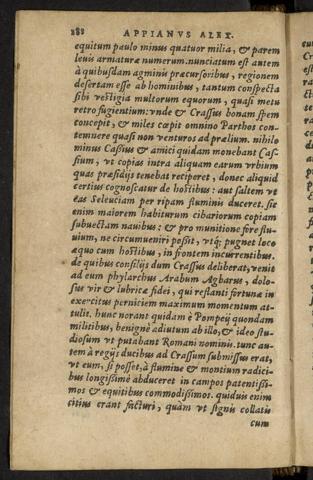 288 APPIANVS ALEX.
equitum paulo minus quatuor milia, & parem
leuis armaturæ numerum. nunciatum est autem
à quibusdam agminis præcursoribus, regionem
desertam esse ab hominibus, tantum conspecta
sibi vestigia multorum equorum, quasi metu
retro fugientium: vnde & Crassus bonam spem
concepit, & miles cœpit omnino Parthos con-
temnere quasi non venturos ad prælium. nihilo
minus Cassius & amici quidam monebant Cas-
sium, vt copias intra aliquam earum vrbium
quas præsidijs tenebat reciperet, donec aliquid
certius cognoscatur de hostibus: aut saltem vt
eas Seleuciam per ripam fluminis duceret. sic
enim maiorem habiturum cibariorum copiam
subuectam nauibus: & pro munitione fore flu-
uium, ne circumueniri possit, vtq; pugnet loco
æquo cum hostibus, in frontem incurrentibus.
de quibus consilijs dum Crassus deliberat, venit
ad eum phylarchus Arabum Agbarus, dolo-
sus vir & lubricæ fidei, qui restanti fortunæ in
exercitus perniciem maximum momentum at-
tulit. hunc norant quidam è Pompeij quondam
militibus, benignè adiutum ab illo, & ideo stu-
diosum vt putabant Romani nominis. tunc au-
tem à regijs ducibus ad Crassum submissus erat,
vt eum, si posset, à flumine & montium radici-
bus longissimè abduceret in campos patentissi-
mos & equitibus commodissimos. quiduis enim
citius erant facturi, quàm vt signis collatis
cum